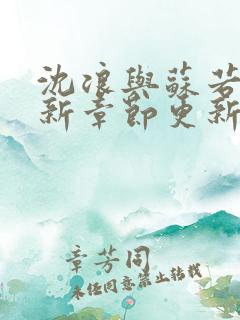 沈浪與蘇若
新章節更新
章芳同
未经同意禁止转载